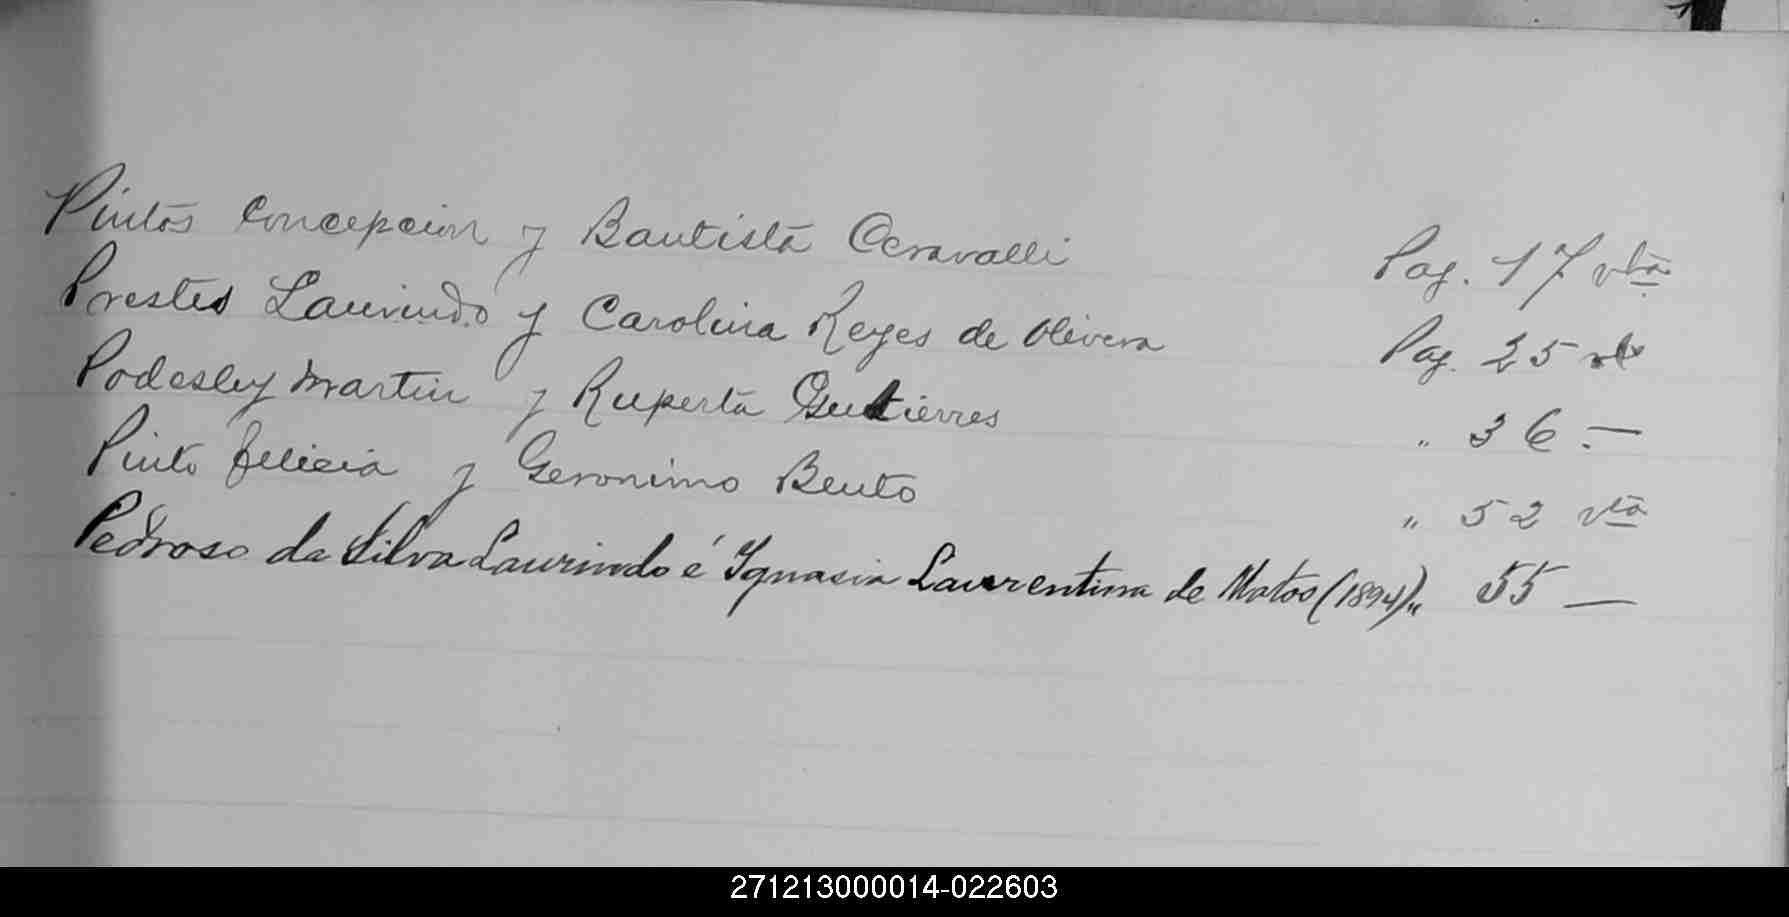 Pintos Concepcion y Bautista Ceravalli Pag. 17 vta
Prestes Laurindo y Carolina Reyes de Olivera Pag. 25 vta
Podesley Martin y Ruperta Gutierres " 36.—
Pinto Felicia y Geronimo Bento " 52 vta
Pedroso da Silva Laurindo é Ygnasia Laurentina de Matos (1894) " 55 —
271213000014-022603